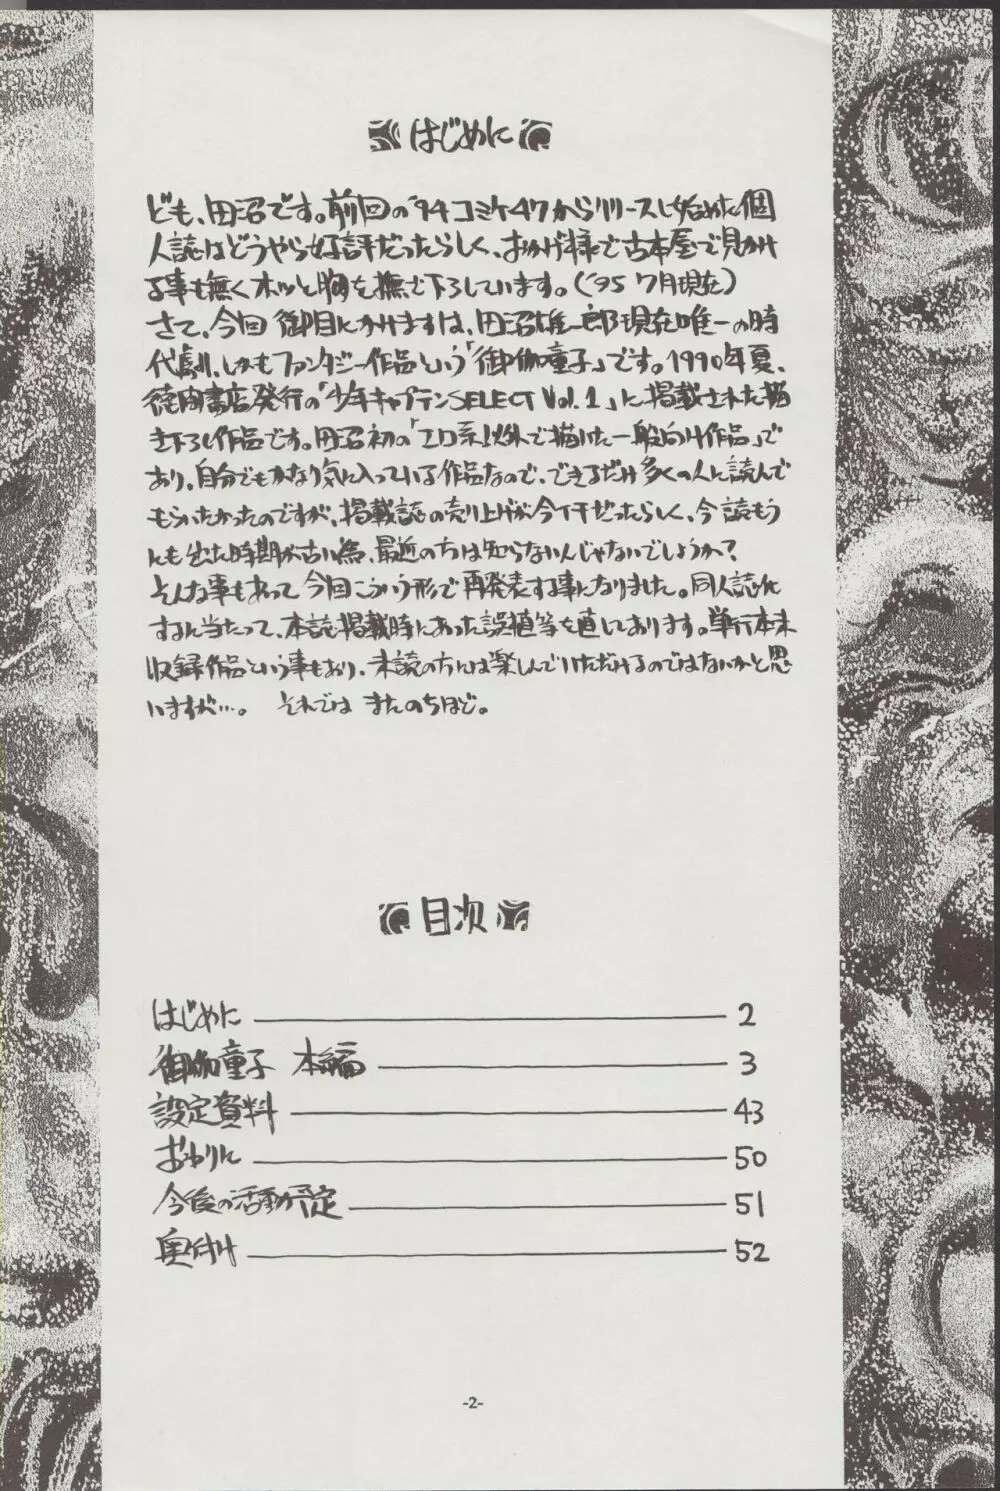 はじめに
ども、田沼です。前回の'94コミケ47からリリースし始めた個
人誌はどうやら好評だったらしく、おかげ様で古本屋で見かけ
る事も無くホッと胸を撫で下ろしています。('95 7月現在)
さて、今回御目にかけますは、田沼雄一郎現在唯一の時
代劇、しかもファンタジー作品という「御伽童子」です。1990年夏、
徳間書店発行の「少年キャプテンSELECT Vol.1」に掲載された描
き下ろし作品です。田沼初の「エロ系」以外で描いた一般向け作品」で
あり、自分でもかなり気に入っている作品なので、できるだけ多くの人に読んで
もらいたかったのですが、掲載誌の売り上げが今イチだったらしく、今読もう
にも出た時期が古い為、最近の方は知らないんじゃないでしょうか?
そんな事もあって今回こういう形で再発表する事になりました。同人誌化
するに当たって、本誌掲載時にあった誤植等を直してあります。単行本未
収録作品という事もあり、未読の方には楽しんでいただけるのではないかと思
いますが…。 それではまたのちほど。
目次
はじめに 2
御伽童子 本編 3
設定資料 43
おわりに 50
今後の活動予定 51
奥付け 52
-2-